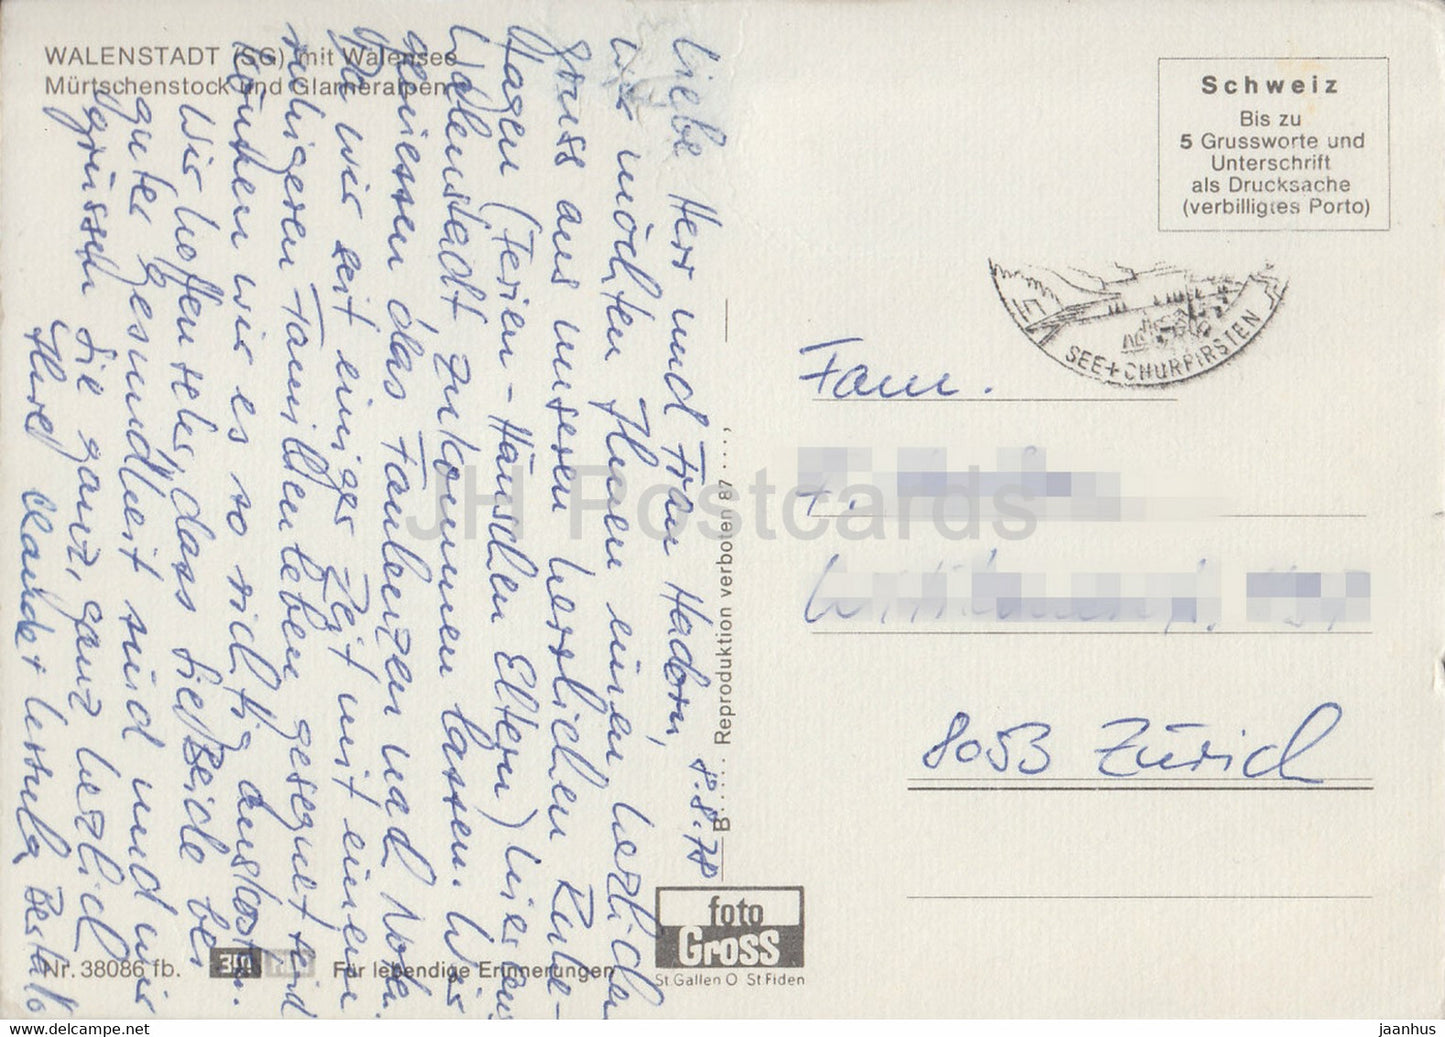 WALENSTADT (SG) mit Walensee
Mürtschenstock und Glarneralpen
Liebe Herr und Frau Hadorn,
8.8.78
wir möchten Ihnen einen herzlichen
Gruss aus unseren herrlichen Ruhe-
tagen (Ferien-Häuschen Eltern) hier aus
Walenstadt zukommen lassen. Wir
geniessen das Faulenzen und
Da wir seit einiger Zeit mit einem
ruhigeren Familienleben gesegnet sind
könnten wir es so richtig auskosten.
Wir hoffen sehr, dass Sie Beide bei
guter Gesundheit sind und wir
grüssen Sie ganz, ganz herzlich
Ihre Claude + Ursula
Nr. 38086 fb.
Für lebendige Erinnerungen
B..... Reproduktion verboten 87....,
foto
Gross
St.Gallen O St Fiden
Schweiz
Bis zu
5 Grussworte und
Unterschrift
als Drucksache
(verbilligtes Porto)
SEE+CHURFIRSTEN
Fam.
8053 Zürich
JH Postcards
www.delcampe.net
jaanhus